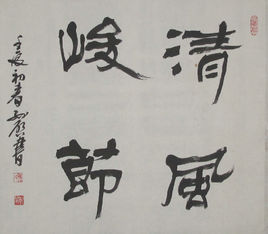 清風
峻節
壬辰初春
書